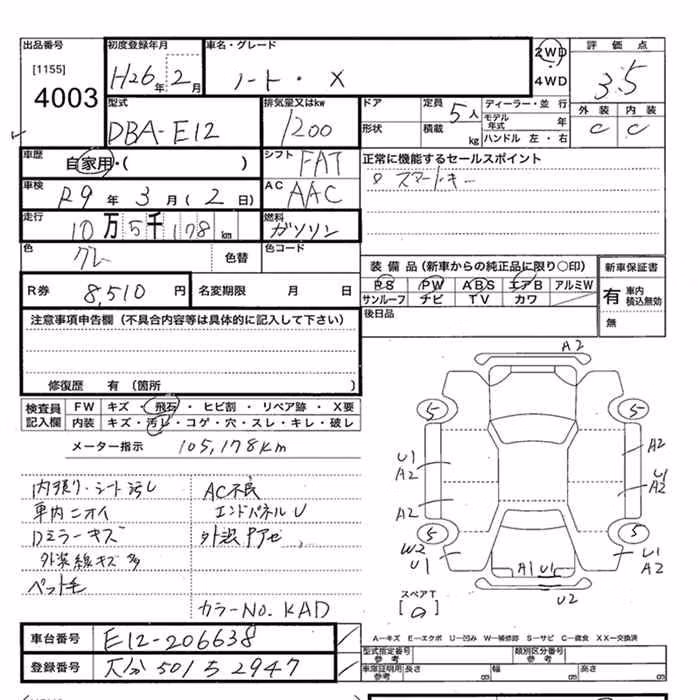 出品番号 初度登録年月 車名・グレード 2WD 評価点
[1155] H26年 2月 ノート・X 4WD 3.5
4003 外装 内装
型式 排気量又はkw ドア 定員 5人 ディーラー・並行 C C
DBA-E12 1200 形状 積載 kg モデル年式 年 ハンドル 左・右
車歴 自家用・( ) シフト FAT 正常に機能するセールスポイント
車検 R9年 3月(2日) AC AAC スマートキー
走行 10万 5千 178 km 燃料 ガソリン
色 グレー 色替 色コード
装備品(新車からの純正品に限り○印) 新車保証書
R券 8,510円 名変期限 月 日 PS PW ABS エアB アルミW 有 車内積込無効
サンルーフ ナビ TV カワ 無
注意事項申告欄(不具合内容等は具体的に記入して下さい) 後日品
修復歴 有(箇所 )
検査員記入欄 FW キズ・飛石・ヒビ割・リペア跡・X要
内装 キズ・汚レ・コゲ・穴・スレ・キレ・破レ
メーター指示 105,178km
内張り・シート汚レ AC不良
車内ニオイ エンドパネルU
Dミラーキズ 外装Pアセ
外装線キズ多
ペット毛
カラーNo. KAD
A2
5 5
U1 A2
A2 U1
A2 A2
5 5
W2 U1
U1 A1 U1 A2
U2
スペアT
[0]
A−キズ E−エクボ U−凹み W−補修跡 S−サビ C−腐食 XX−交換済
車台番号 E12-206638 型式指定番号 参考 類別区分番号 参考
登録番号 大分 501 ち 2947 車庫証明用 参考 長さ 幅 高さ